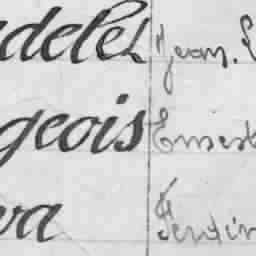 deler Jean.
geois Ernest
va Ferdin